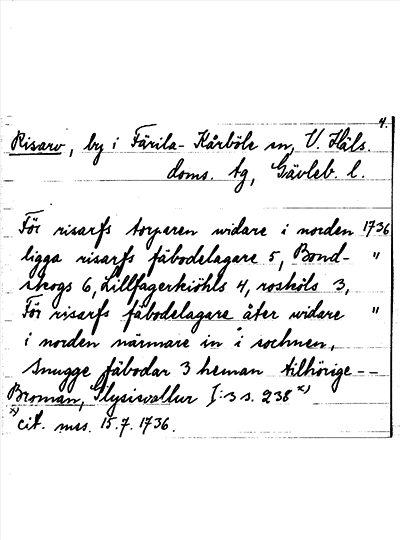 4.
Risarv, by i Färila-Kårböle sn, V. Häls.
doms. tg, Gävleb. l.
För risarfs torparen widare i norden 1736
ligga risarfs fäbodelagare 5, Bond- "
skogs 6, Lillfagerkiöhls 4, rosköls 3,
För risarfs fäbodelagare åter widare "
i norden närmare in i sochnen,
Snugge fäbodar 3 heman tilhörige --
Broman, Glysisvallur I:3 s. 238 x)
x) cit. mss. 15.7.1736.